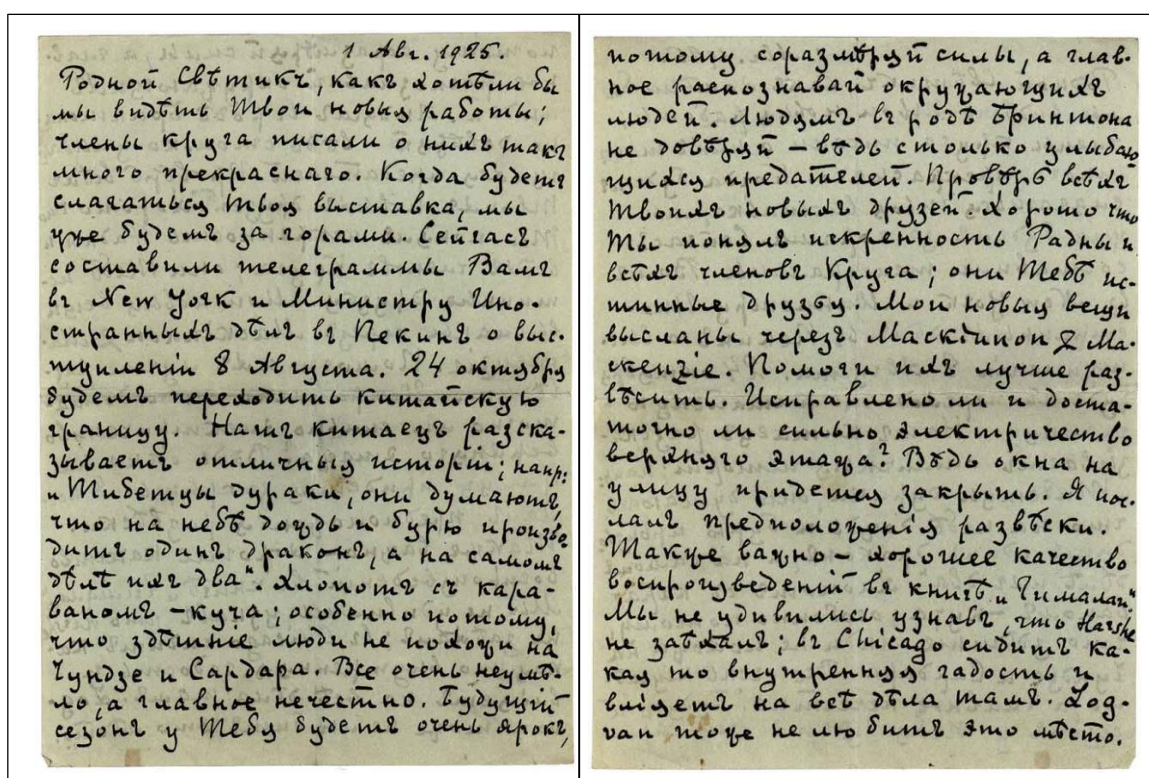 1 Авг. 1925.
Родной Свѣтикъ, какъ хотѣли бы
мы видѣть Твои новыя работы;
члены круга писали о нихъ такъ
много прекраснаго. Когда будетъ
слагаться твоя выставка, мы
уже будемъ за горами. Сейчасъ
составили телеграммы Вамъ
въ New York и Министру Ино-
странныхъ дѣлъ въ Пекинъ о выс-
туплении 8 Августа. 24 октября
будемъ переходить китайскую
границу. Нашъ китаецъ разска-
зываетъ отличныя исторіи; напр:
„Тибетцы дураки, они думаютъ,
что на небѣ дождь и бурю произво-
дитъ одинъ драконъ, а на самомъ
дѣлѣ ихъ два“. Хлопотъ съ кара-
ваномъ – куча; особенно потому,
что здѣшніе люди не похожи на
Гундзе и Сардара. Все очень неумѣ-
ло, а главное нечестно. Будущій
сезонъ у Тебя будетъ очень ярокъ,
потому соразмѣряй силы, а глав-
ное распознавай окружающихъ
людей. Людямъ въ родѣ Бринтона
не довѣряй – вѣдь столько улыбаю
щихся предателей. Провѣрь всѣхъ
Твоихъ новыхъ друзей. Хорошо что
Ты понялъ искренность Радны и
всѣхъ членовъ Круга; они Тебѣ ис-
тинные друзья. Мои новыя вещи
высланы черезъ Mackinnon & Ma-
ckenzie. Помоги ихъ лучше раз-
вѣсить. Исправлено ли и доста-
точно ли сильно электричество
верхняго этажа? Вѣдь окна на
улицу придется закрыть. Я пос-
лалъ предположенія развѣски.
Также важно – хорошее качество
воспроизведеній въ книгѣ „Гималаи“.
Мы не удивились узнавъ, что Harshe
не заѣхалъ; въ Chicago сидитъ ка-
кая то внутренняя гадость и
вліяетъ на всѣ дѣла тамъ. Log-
van тоже не любитъ это мѣсто.